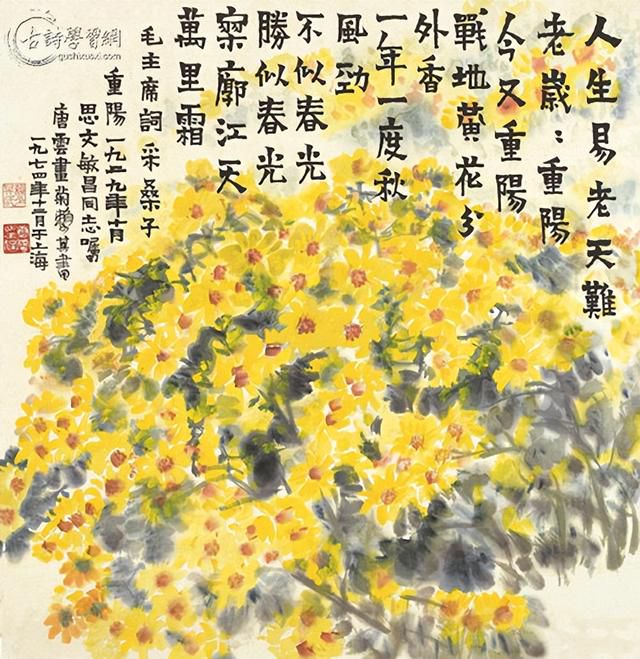 古詩學習網
gushixuexi.com
人生易老天難
老歲〻重陽
今又重陽
戰地黄花分
外香
一年一度秋
風勁
不似春光
勝似春光
寥廓江天
萬里霜
毛主席詞采桑子
重陽一九二九年十月
思文敏昌同志囑
唐雲畫菊其書
一九七四年十二月于上海